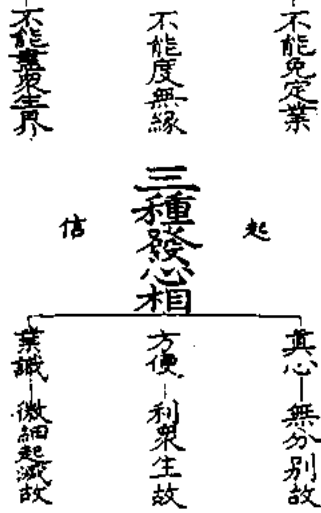 不能免定業
不能度無緣
不能盡眾生界
三種發心相
起
信
真心—無分別故
方便—利眾生故
業識—微細起滅故